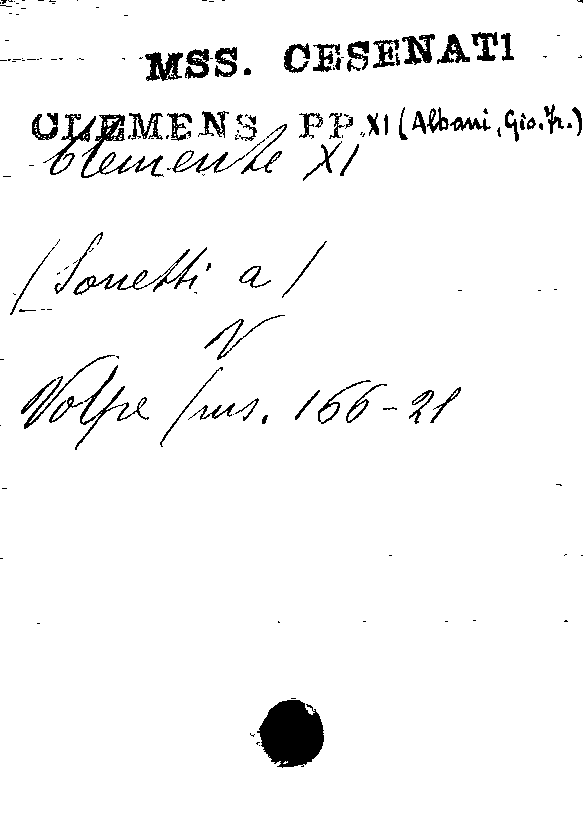 MSS. CESENATI
CLEMENS PP. XI (Albani, Gio. Fr.)
Clemente XI
(Sonetti a)
V
Volpe (ms. 166-21